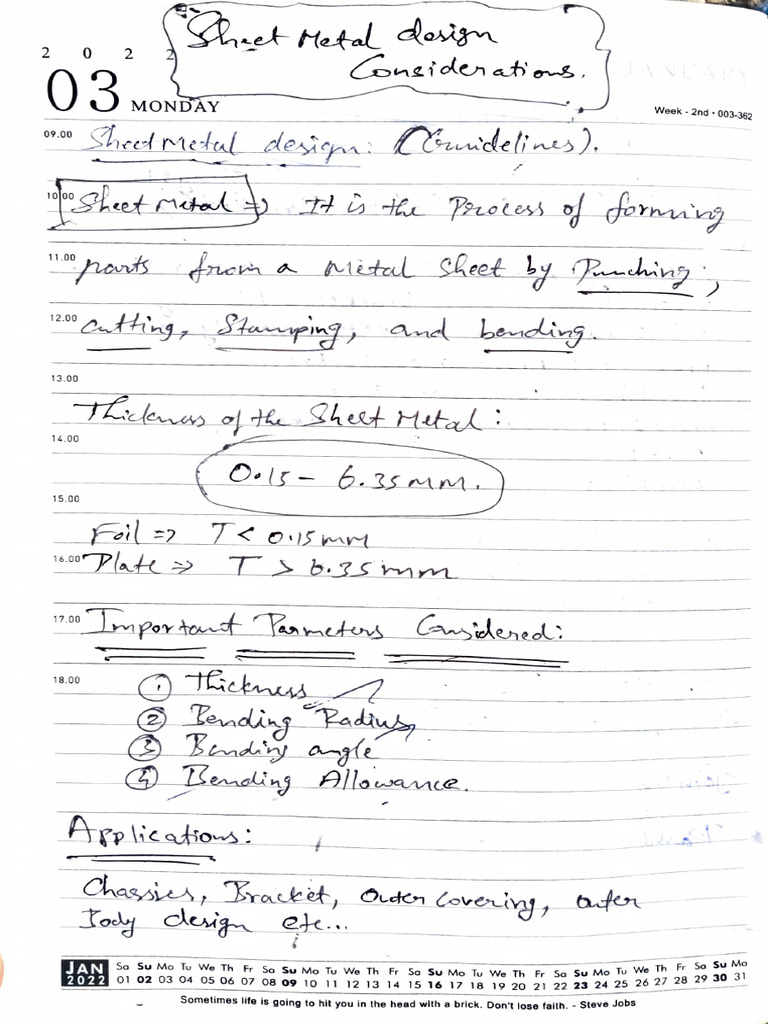 Sheet Metal design
Considerations.
2022
03 MONDAY
Week - 2nd • 003-362
09.00 Sheet Metal design: (Guidelines).
10.00 Sheet Metal => It is the Process of forming
11.00 parts from a Metal Sheet by Punching,
12.00 cutting, Stamping, and bending.
13.00
Thickness of the Sheet Metal:
14.00
0.15 - 6.35 mm.
15.00
Foil => T < 0.15 mm
16.00 Plate => T > 6.35 mm
17.00 Important Parmeters Considered:
18.00
① Thickness
② Bending Radius
③ Bending angle
④ Bending Allowance.
Applications:
Chassies, Bracket, Outer Covering, outer
Body design etc...
JAN Sa Su Mo Tu We Th Fr Sa Su Mo Tu We Th Fr Sa Su Mo Tu We Th Fr Sa Su Mo Tu We Th Fr Sa Su Mo
2022 01 02 03 04 05 06 07 08 09 10 11 12 13 14 15 16 17 18 19 20 21 22 23 24 25 26 27 28 29 30 31
Sometimes life is going to hit you in the head with a brick. Don't lose faith. - Steve Jobs